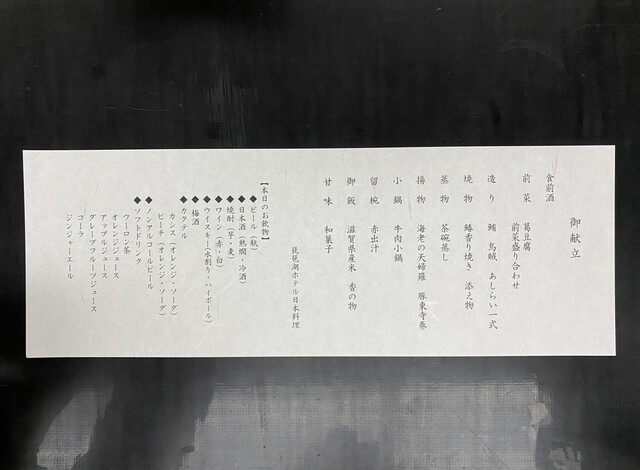 御献立
食前酒
前菜 葛豆腐
前菜盛り合わせ
造り 鮪 烏賊 あしらい一式
焼物 鰆香り焼き 添え物
蒸物 茶碗蒸し
揚物 海老の天婦羅 豚東寺巻
小鍋 牛肉小鍋
留椀 赤出汁
御飯 滋賀県産米 香の物
甘味 和菓子
琵琶湖ホテル日本料理
【本日のお飲物】
◆ビール(瓶)
◆日本酒(熱燗・冷酒)
◆焼酎(芋・麦)
◆ワイン(赤・白)
◆ウイスキー(水割り・ハイボール)
◆梅酒
◆カクテル
カシス(オレンジ・ソーダ)
ピーチ(オレンジ・ソーダ)
◆ノンアルコールビール
◆ソフトドリンク
ウーロン茶
オレンジジュース
アップルジュース
グレープフルーツジュース
コーラ
ジンジャーエール